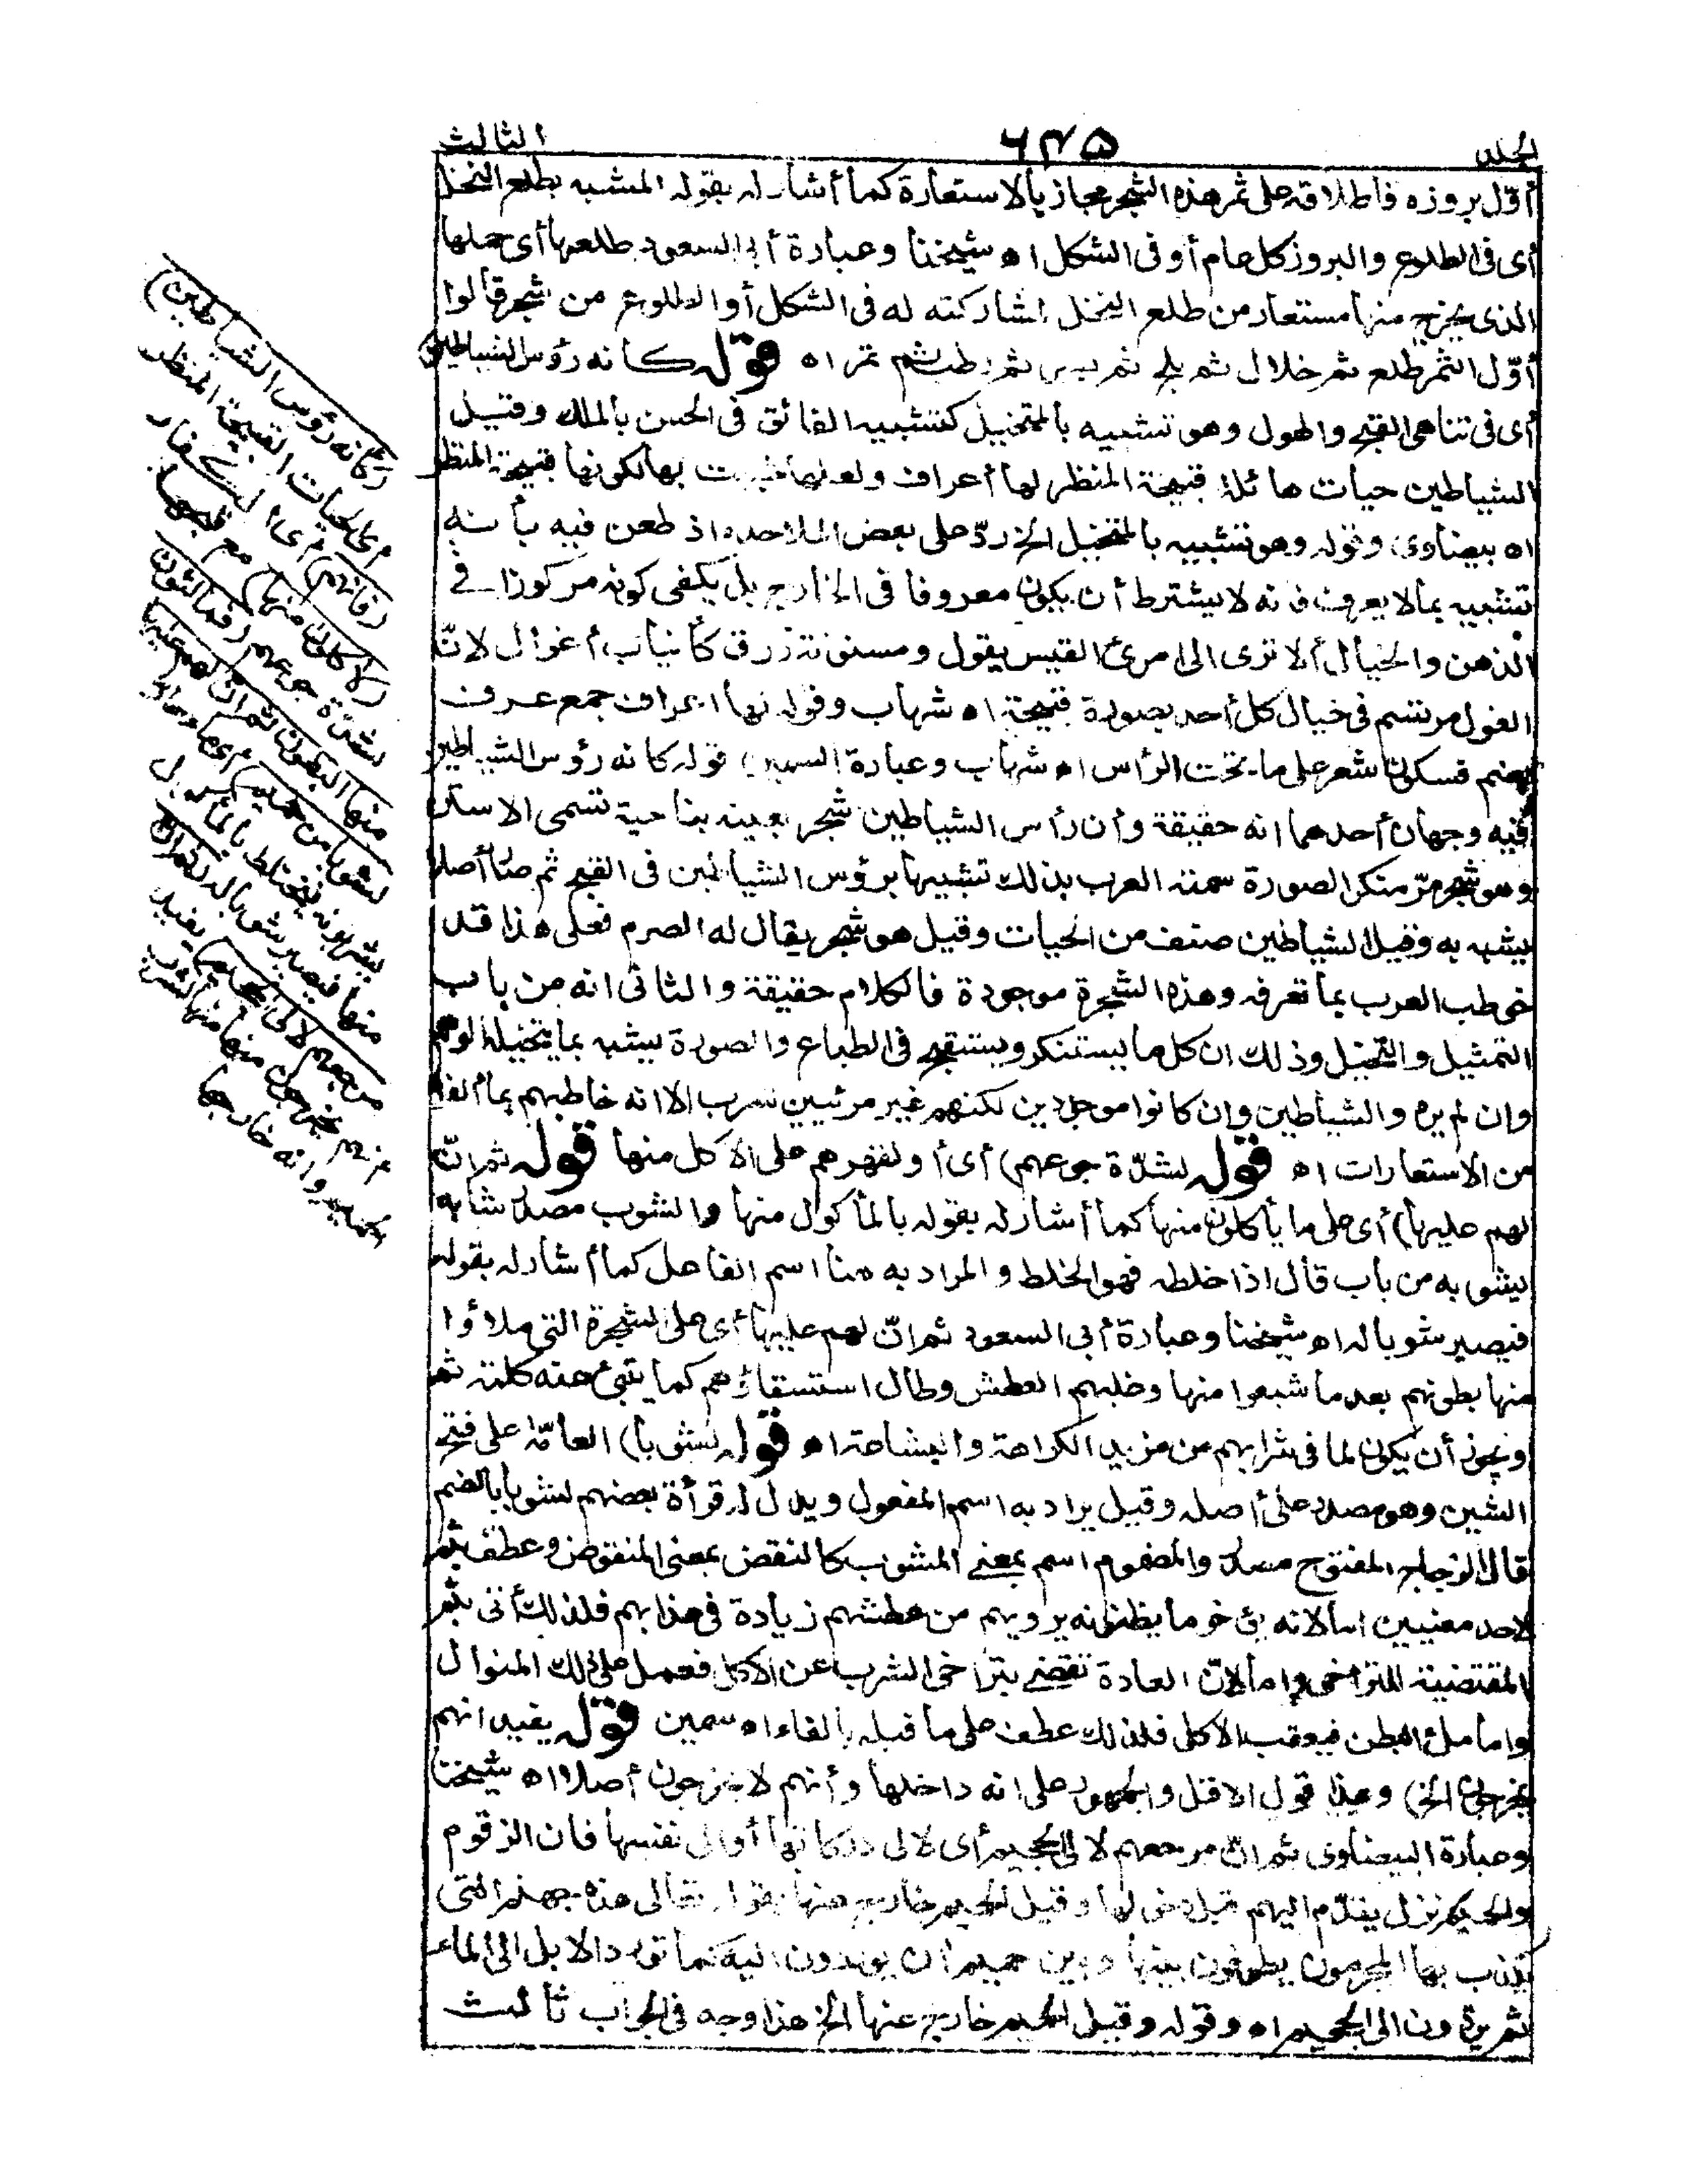 الجلد ٦٣٥ الثالث
أوّل بروزه فاطلاقه على ثمر هذه الشجر مجاز بالاستعارة كما أشار له بقوله المشبه بطلع النخل
أى فى الطلوع والبروز كل عام أو فى الشكل اه شيخنا وعبارة أبى السعود طلعها أى حملها
الذى يخرج منها مستعار من طلع النخل لمشاركته له فى الشكل أو الطلوع من شجر قالوا
أوّل الثمر طلع ثم خلال ثم بلح ثم بسر ثم رطب ثم تمر اه قوله كانه رؤس الشياطين
أى فى تناهى القبح والهول وهو تشبيه بالمتخيل كتشبيه الفائق فى الحسن بالملك وقيل
الشياطين حيات هائلة قبيحة المنظر لها أعراف ولعلها سميت بها لكونها قبيحة المنظر
اه بيضاوى وقوله وهو تشبيه بالمتخيل الخ ردّ على بعض الملاحدة اذ طعن فيه بأنه
تشبيه بما لا يعرف فانه لا يشترط أن يكون معروفا فى الخارج بل يكفى كونه مركوزا فى
الذهن والخيال ألا ترى الى امرئ القيس يقول ومسنونة زرق كأنياب أغوال لانّ
الغول مرتسم فى خيال كل أحد بصورة قبيحة اه شهاب وقوله لها اعراف جمع عرف
بضم فسكون شعر على ما تحت الرأس اه شهاب وعبارة السمين قوله كانه رؤس الشياطين
فيه وجهان أحدهما انه حقيقة وأن رأس الشياطين شجر بعينه بناحية تسمى الاستن
وهو شجر مرّ منكر الصورة سمته العرب بذلك تشبيها برؤس الشياطين فى القبح ثم صار أصلا
يشبه به وقيل الشياطين صنف من الحيات وقيل هو شجر يقال له الصرم فعلى هذا قد
خوطب العرب بما تعرفه وهذه الشجرة موجودة فالكلام حقيقة والثانى انه من باب
التمثيل والتخيل وذلك ان كل ما يستنكر ويستقبح فى الطباع والصورة يشبه بما يتخيله الوهم
وان لم يره والشياطين وان كانوا موجودين لكنهم غير مرئيين للعرب الا انه خاطبهم بما ألفوه
من الاستعارات اه قوله لشدّة جوعهم) أى أو لقهرهم على الاكل منها قوله ثم انّ
لهم عليها) أى على ما يأكلون منها كما أشار له بقوله بالمأكول منها والشوب مصدر شابه
يشوبه من باب قال اذا خلطه فهو الخلط والمراد به هنا اسم الفاعل كما أشار له بقوله
فيصير شوبا له اه شيخنا وعبارة أبى السعود ثم انّ لهم عليها أى على الشجرة التى ملأوا
منها بطونهم بعد ما شبعوا منها وغلبهم العطش وطال استسقاؤهم كما ينبئ عنه كلمة ثم
ويجوز أن يكون لما فى شرابهم من مزيد الكراهة والبشاعة اه قوله لشوبا) العامّة على فتح
الشين وهو مصدر على أصله وقيل يراد به اسم المفعول ويدل له قرأة بعضهم لشوبا بالضم
قال الزجاج المفتوح مصدر والمضموم اسم بمعنى المشوب كالنقض بمعنى المنقوض وعطف بثم
لاحد معنيين اما لانه يؤخر ما يظنونه يرويهم من عطشهم زيادة فى عذابهم فلذلك أتى بثم
المقتضية للتراخى واما لانّ العادة تقضى بتراخى الشرب عن الاكل فعمل على ذلك المنوال
واما ملء البطن فيعقب الاكل فلذلك عطف على ما قبله بالفاء اه سمين قوله يفيد انهم
يخرجون الخ) وهذا قول الاقل والجمهور على انه داخلها وأنهم لا يخرجون أصلا اه شيخنا
وعبارة البيضاوى ثم انّ مرجعهم لالى الجحيم أى لالى دركاتها أو الى نفسها فان الزقوم
والحميم نزل يقدّم اليهم قبل دخولها وقيل الحميم خارج عنها بقوله تعالى هذه جهنم التى
يكذب بها المجرمون يطوفون بينها وبين حميم آن يوردون اليه كما تورد الابل الى الماء
ثم يردّون الى الجحيم اه وقوله وقيل الحميم خارج عنها الخ هذا وجه فى الجواب ثالث
(كأنه رؤس الشياطين)
أى الحيات القبيحة المنظر
(فانهم) أى الكفار
(لآكلون منها) مع قبحها
لشدّة جوعهم (فمالئون
منها البطون ثم ان لهم عليها
لشوبا من حميم) أى ماء حار
يشربونه فيختلط بالمأكول
منها فيصير شوبا له (ثم ان
مرجعهم لالى الجحيم) يفيد
أنهم يخرجون منها لشرب
الحميم وانه خارجها